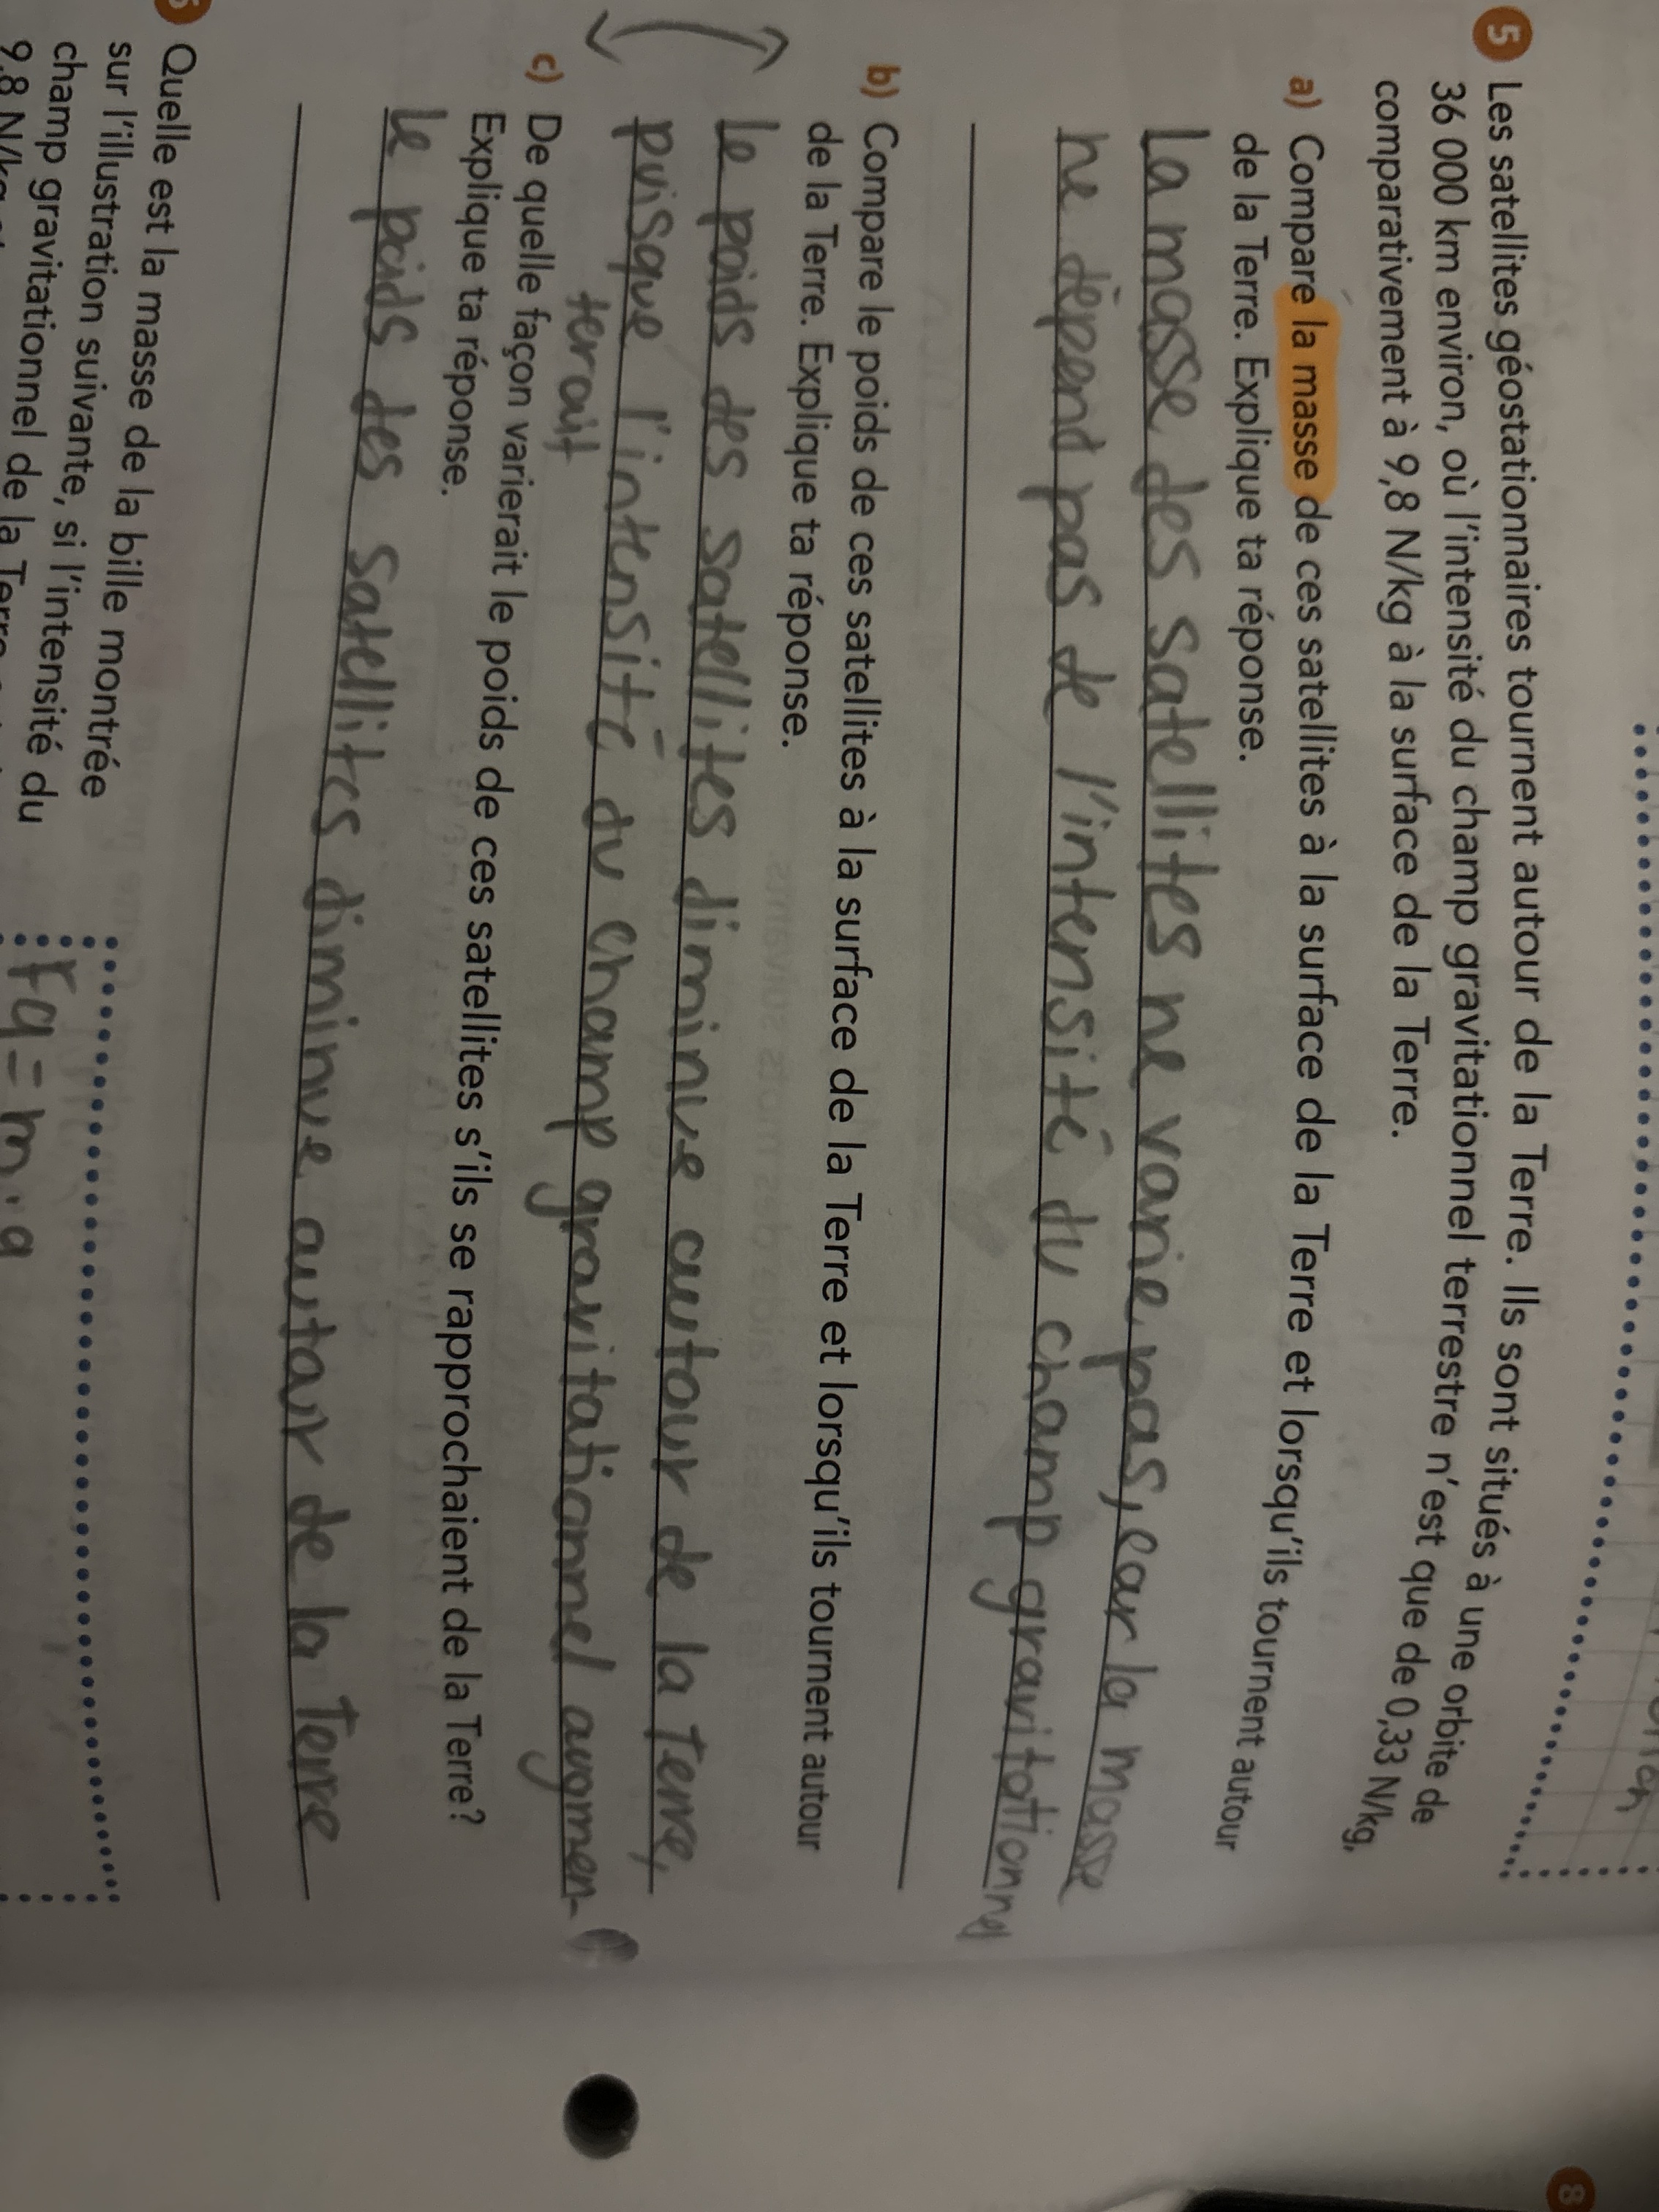 5 Les satellites géostationnaires tournent autour de la Terre. Ils sont situés à une orbite de
36 000 km environ, où l'intensité du champ gravitationnel terrestre n'est que de 0,33 N/kg,
comparativement à 9,8 N/kg à la surface de la Terre.
a) Compare la masse de ces satellites à la surface de la Terre et lorsqu'ils tournent autour
de la Terre. Explique ta réponse.
La masse des satellites ne varie pas, car la masse
ne dépend pas de l'intensité du champ gravitationnel
b) Compare le poids de ces satellites à la surface de la Terre et lorsqu'ils tournent autour
de la Terre. Explique ta réponse.
Le poids des satellites diminue autour de la Terre,
puisque l'intensité du champ gravitationnel augmen-
terait
c) De quelle façon varierait le poids de ces satellites s'ils se rapprochaient de la Terre?
Explique ta réponse.
Le poids des satellites diminue autour de la Terre
Quelle est la masse de la bille montrée
sur l'illustration suivante, si l'intensité du
champ gravitationnel de la Terre
9,8 N/kg
Fg = m · g
8